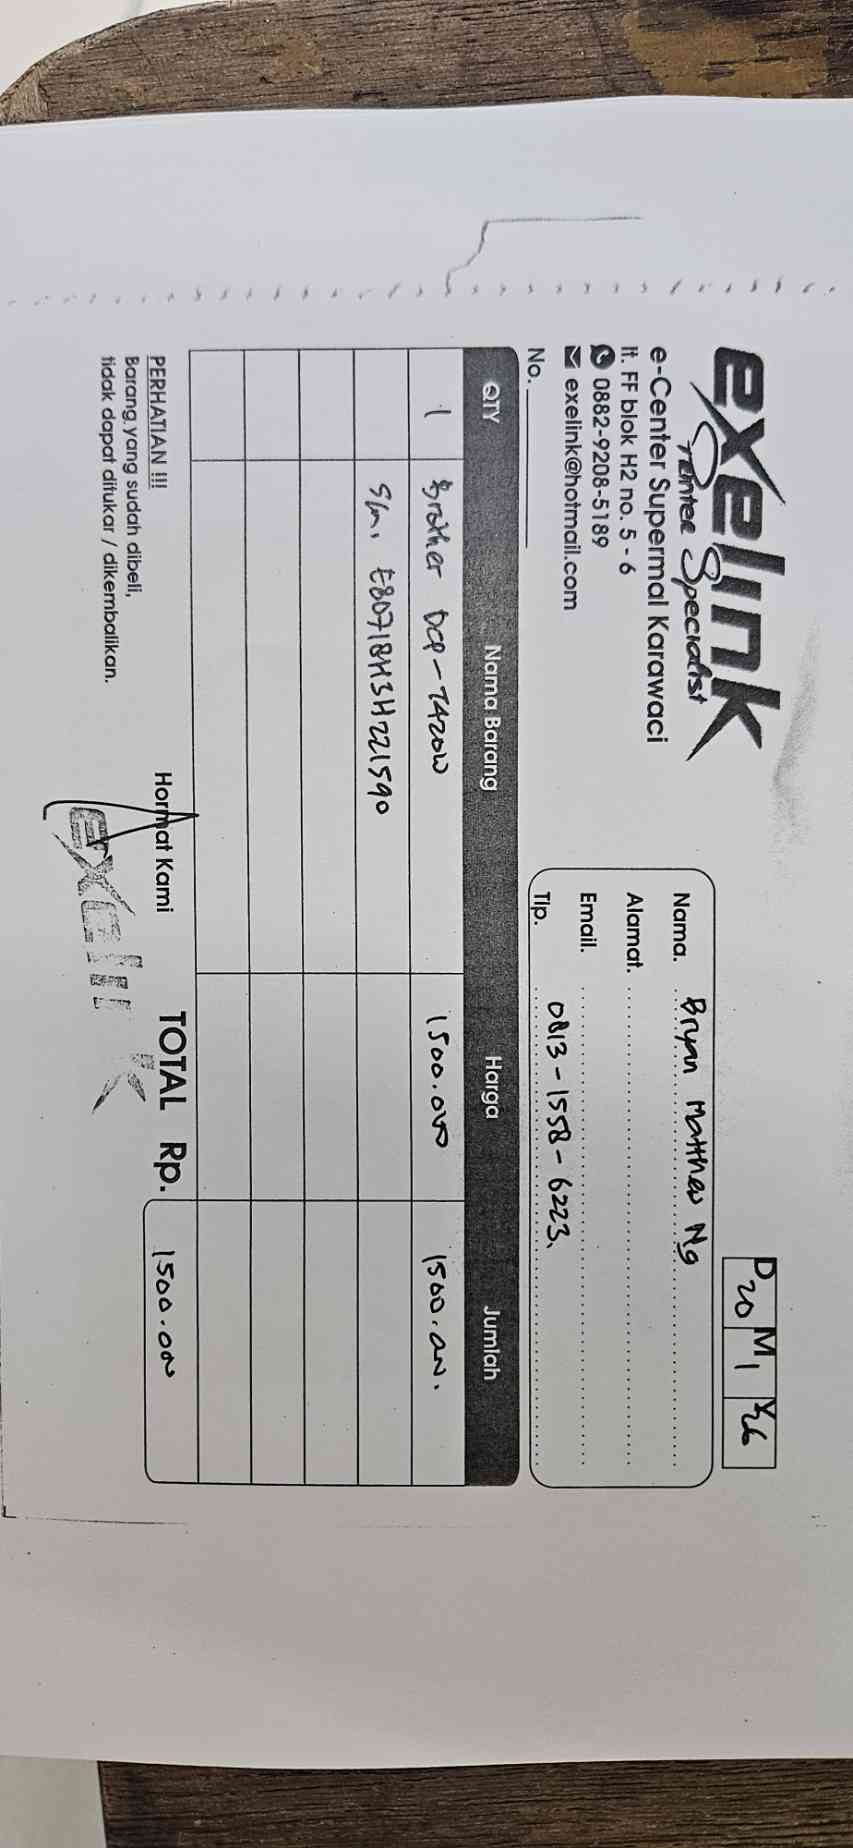 exelink
Printer Specialist
e-Center Supermal Karawaci
lt. FF blok H2 no. 5 - 6
0882-9208-5189
exelink@hotmail.com
No.
D 20 M 1 Y 26
Nama. Bryan Matthew Ng
Alamat.
Email.
Tlp. 0813-1558-6223.
QTY Nama Barang Harga Jumlah
1 Brother DCP-7420W 1500.000 1500.000.
S/n. E80718H3H221590
PERHATIAN !!!
Barang yang sudah dibeli,
tidak dapat ditukar / dikembalikan.
Hormat Kami
exelink
TOTAL Rp. 1500.000